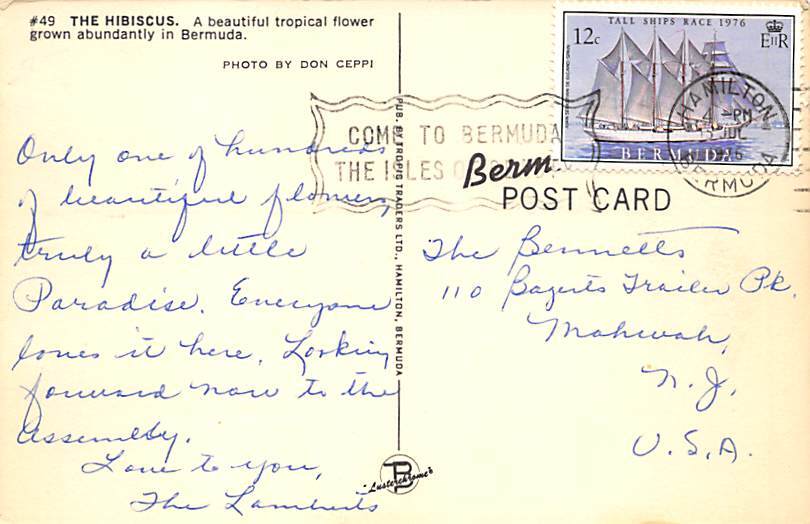 #49 THE HIBISCUS. A beautiful tropical flower
grown abundantly in Bermuda.
PHOTO BY DON CEPPI
Only one of hundreds
of beautiful flowers,
truly a little
Paradise. Everyone
loves it here. Looking
forward now to the
Assembly.
Love to you,
The Lamberts
PUB. BY TROPIC TRADERS LTD., HAMILTON, BERMUDA
"Lusterchrome's
TALL SHIPS RACE 1976
12c
EIIR
BERMUDA
HAMILTON
PM
JUL
1976
BERMUDA
COME TO BERMUDA
THE ISLES
Berm
POST CARD
The Bennetts
110 Bogerts Trailer Pk.
Mahwah,
N.J.
U.S.A.